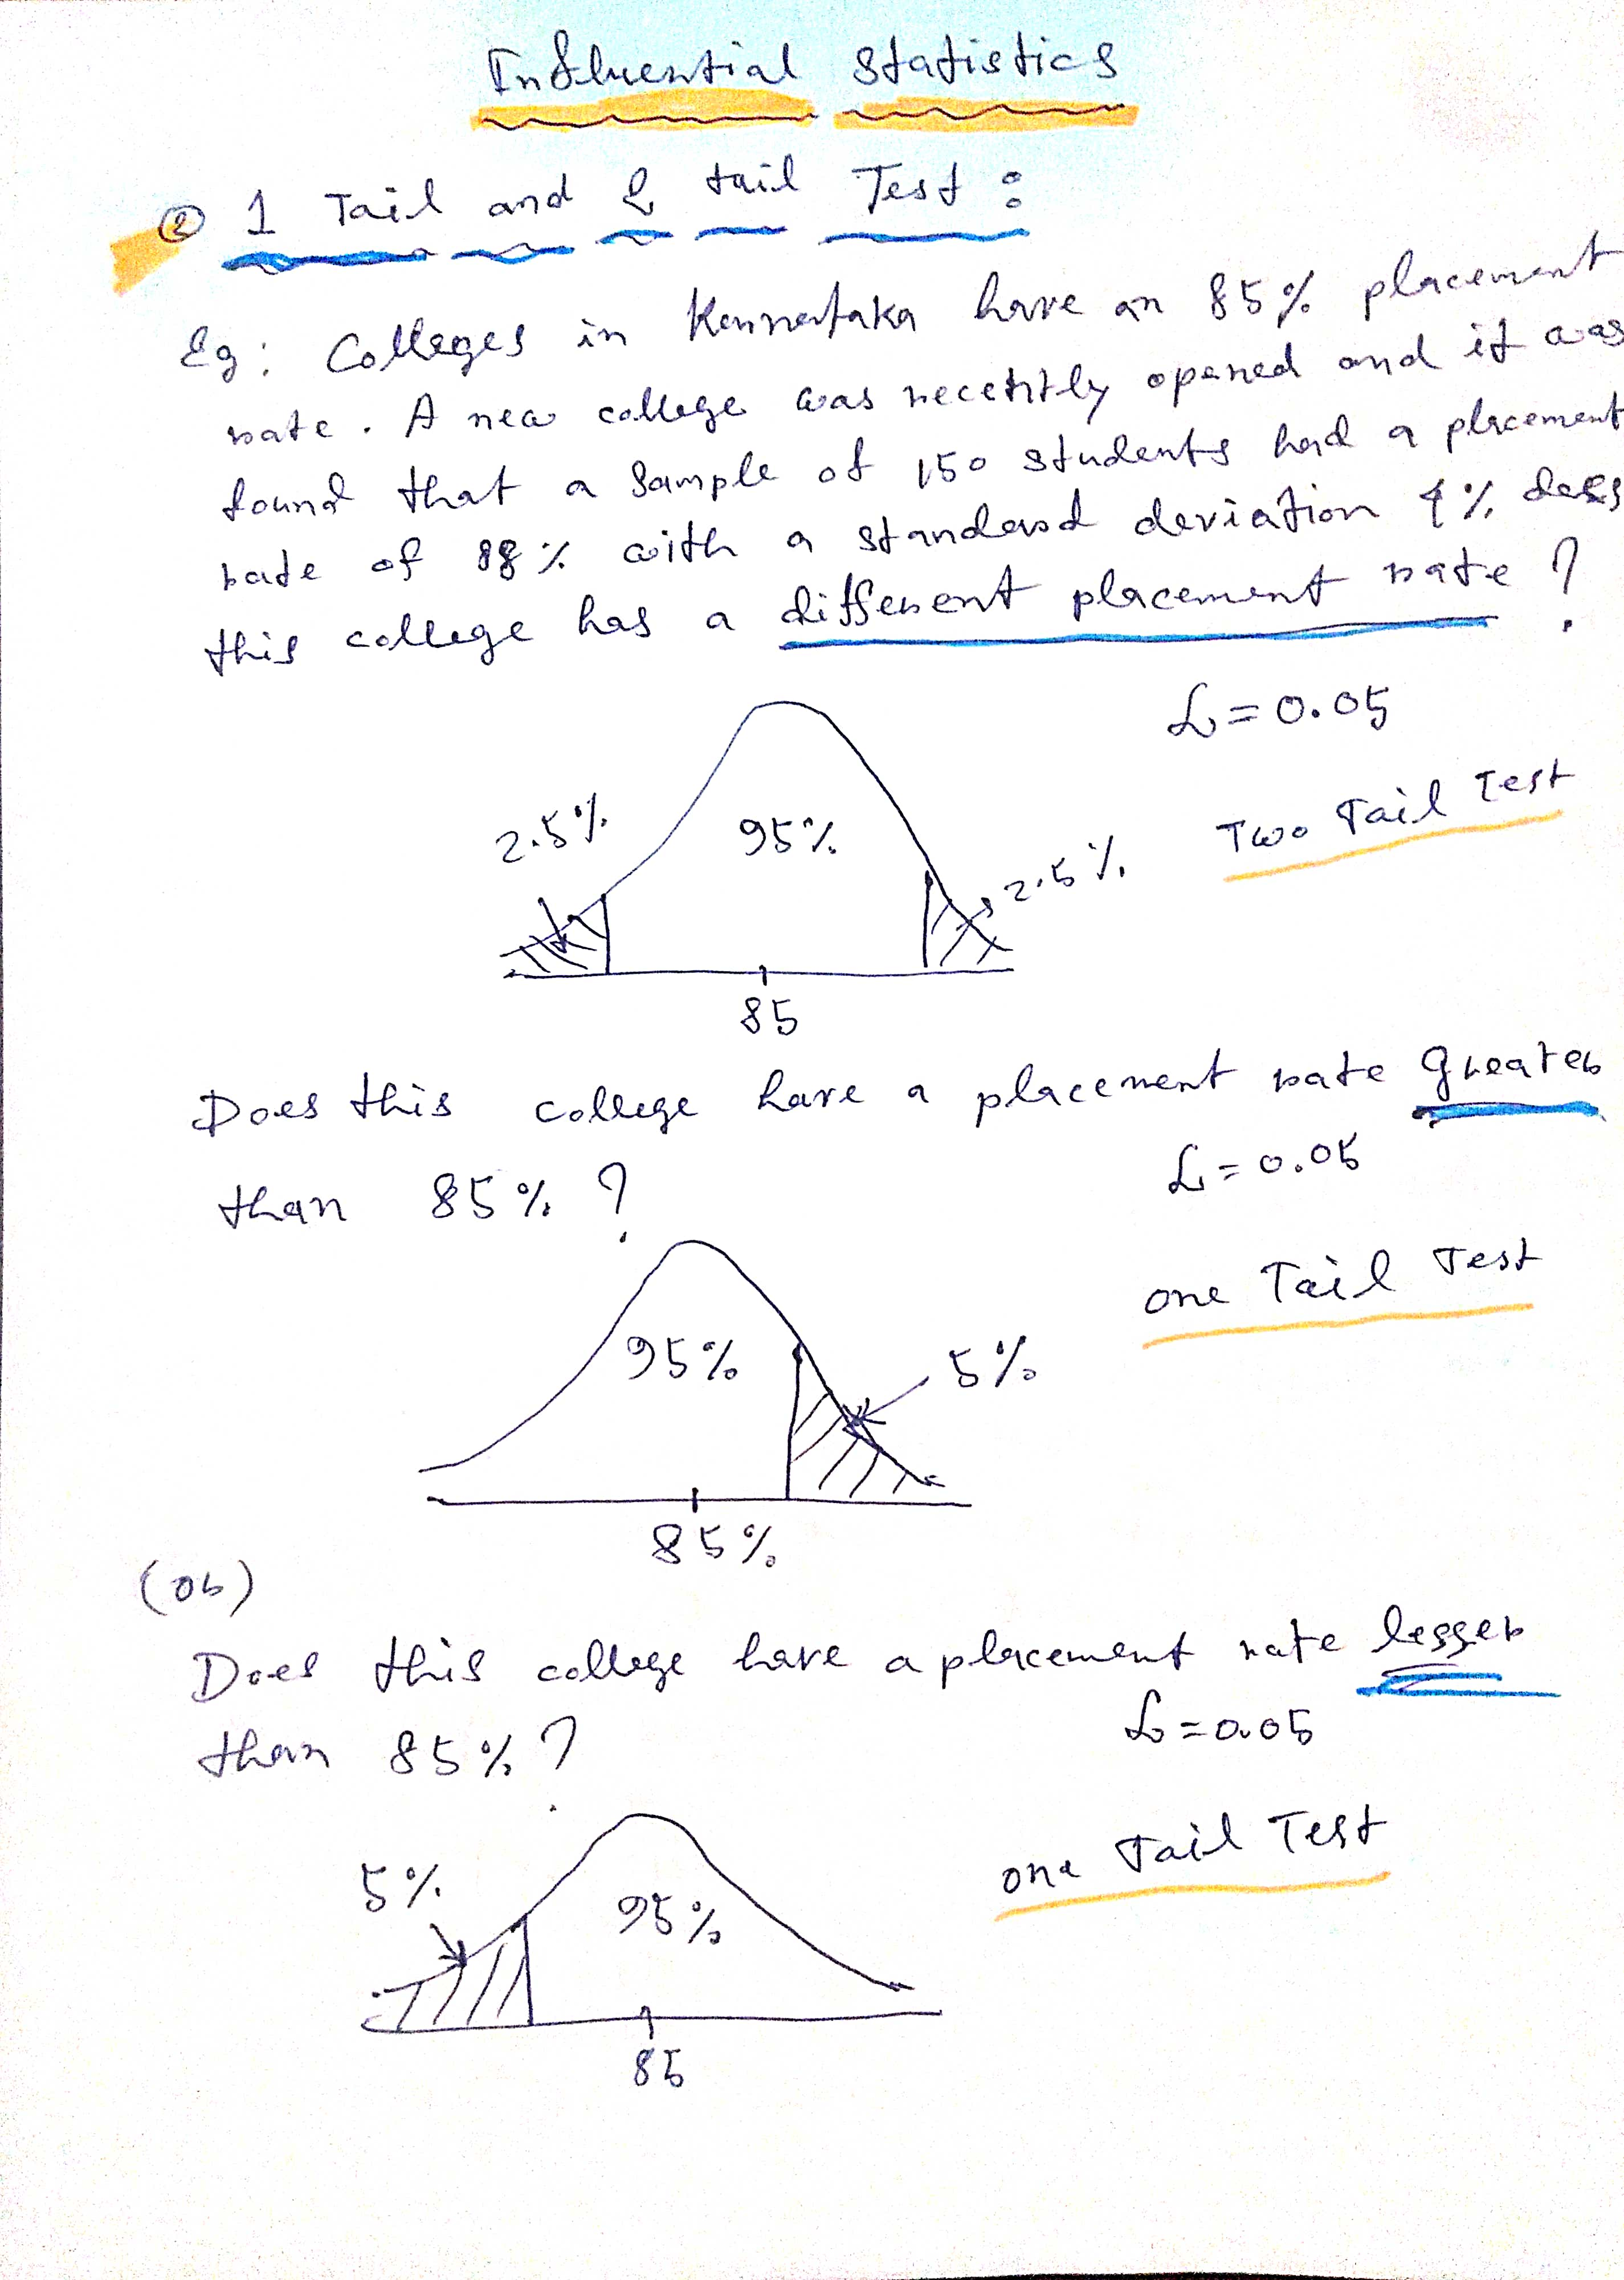 Influential Statistics
② 1 Tail and 2 tail Test :
Eg : Colleges in Karnataka have an 85% placement
rate . A new college was recently opened and it was
found that a sample of 150 students had a placement
rate of 88% with a standard deviation 4% does
this college has a different placement rate ?
α = 0.05
2.5% 95% 2.5% Two Tail Test
85
Does this college have a placement rate greater
than 85% ? α = 0.05
one Tail Test
95% 5%
85%
(or)
Does this college have a placement rate lesser
than 85% ? α = 0.05
one Tail Test
5% 95%
85